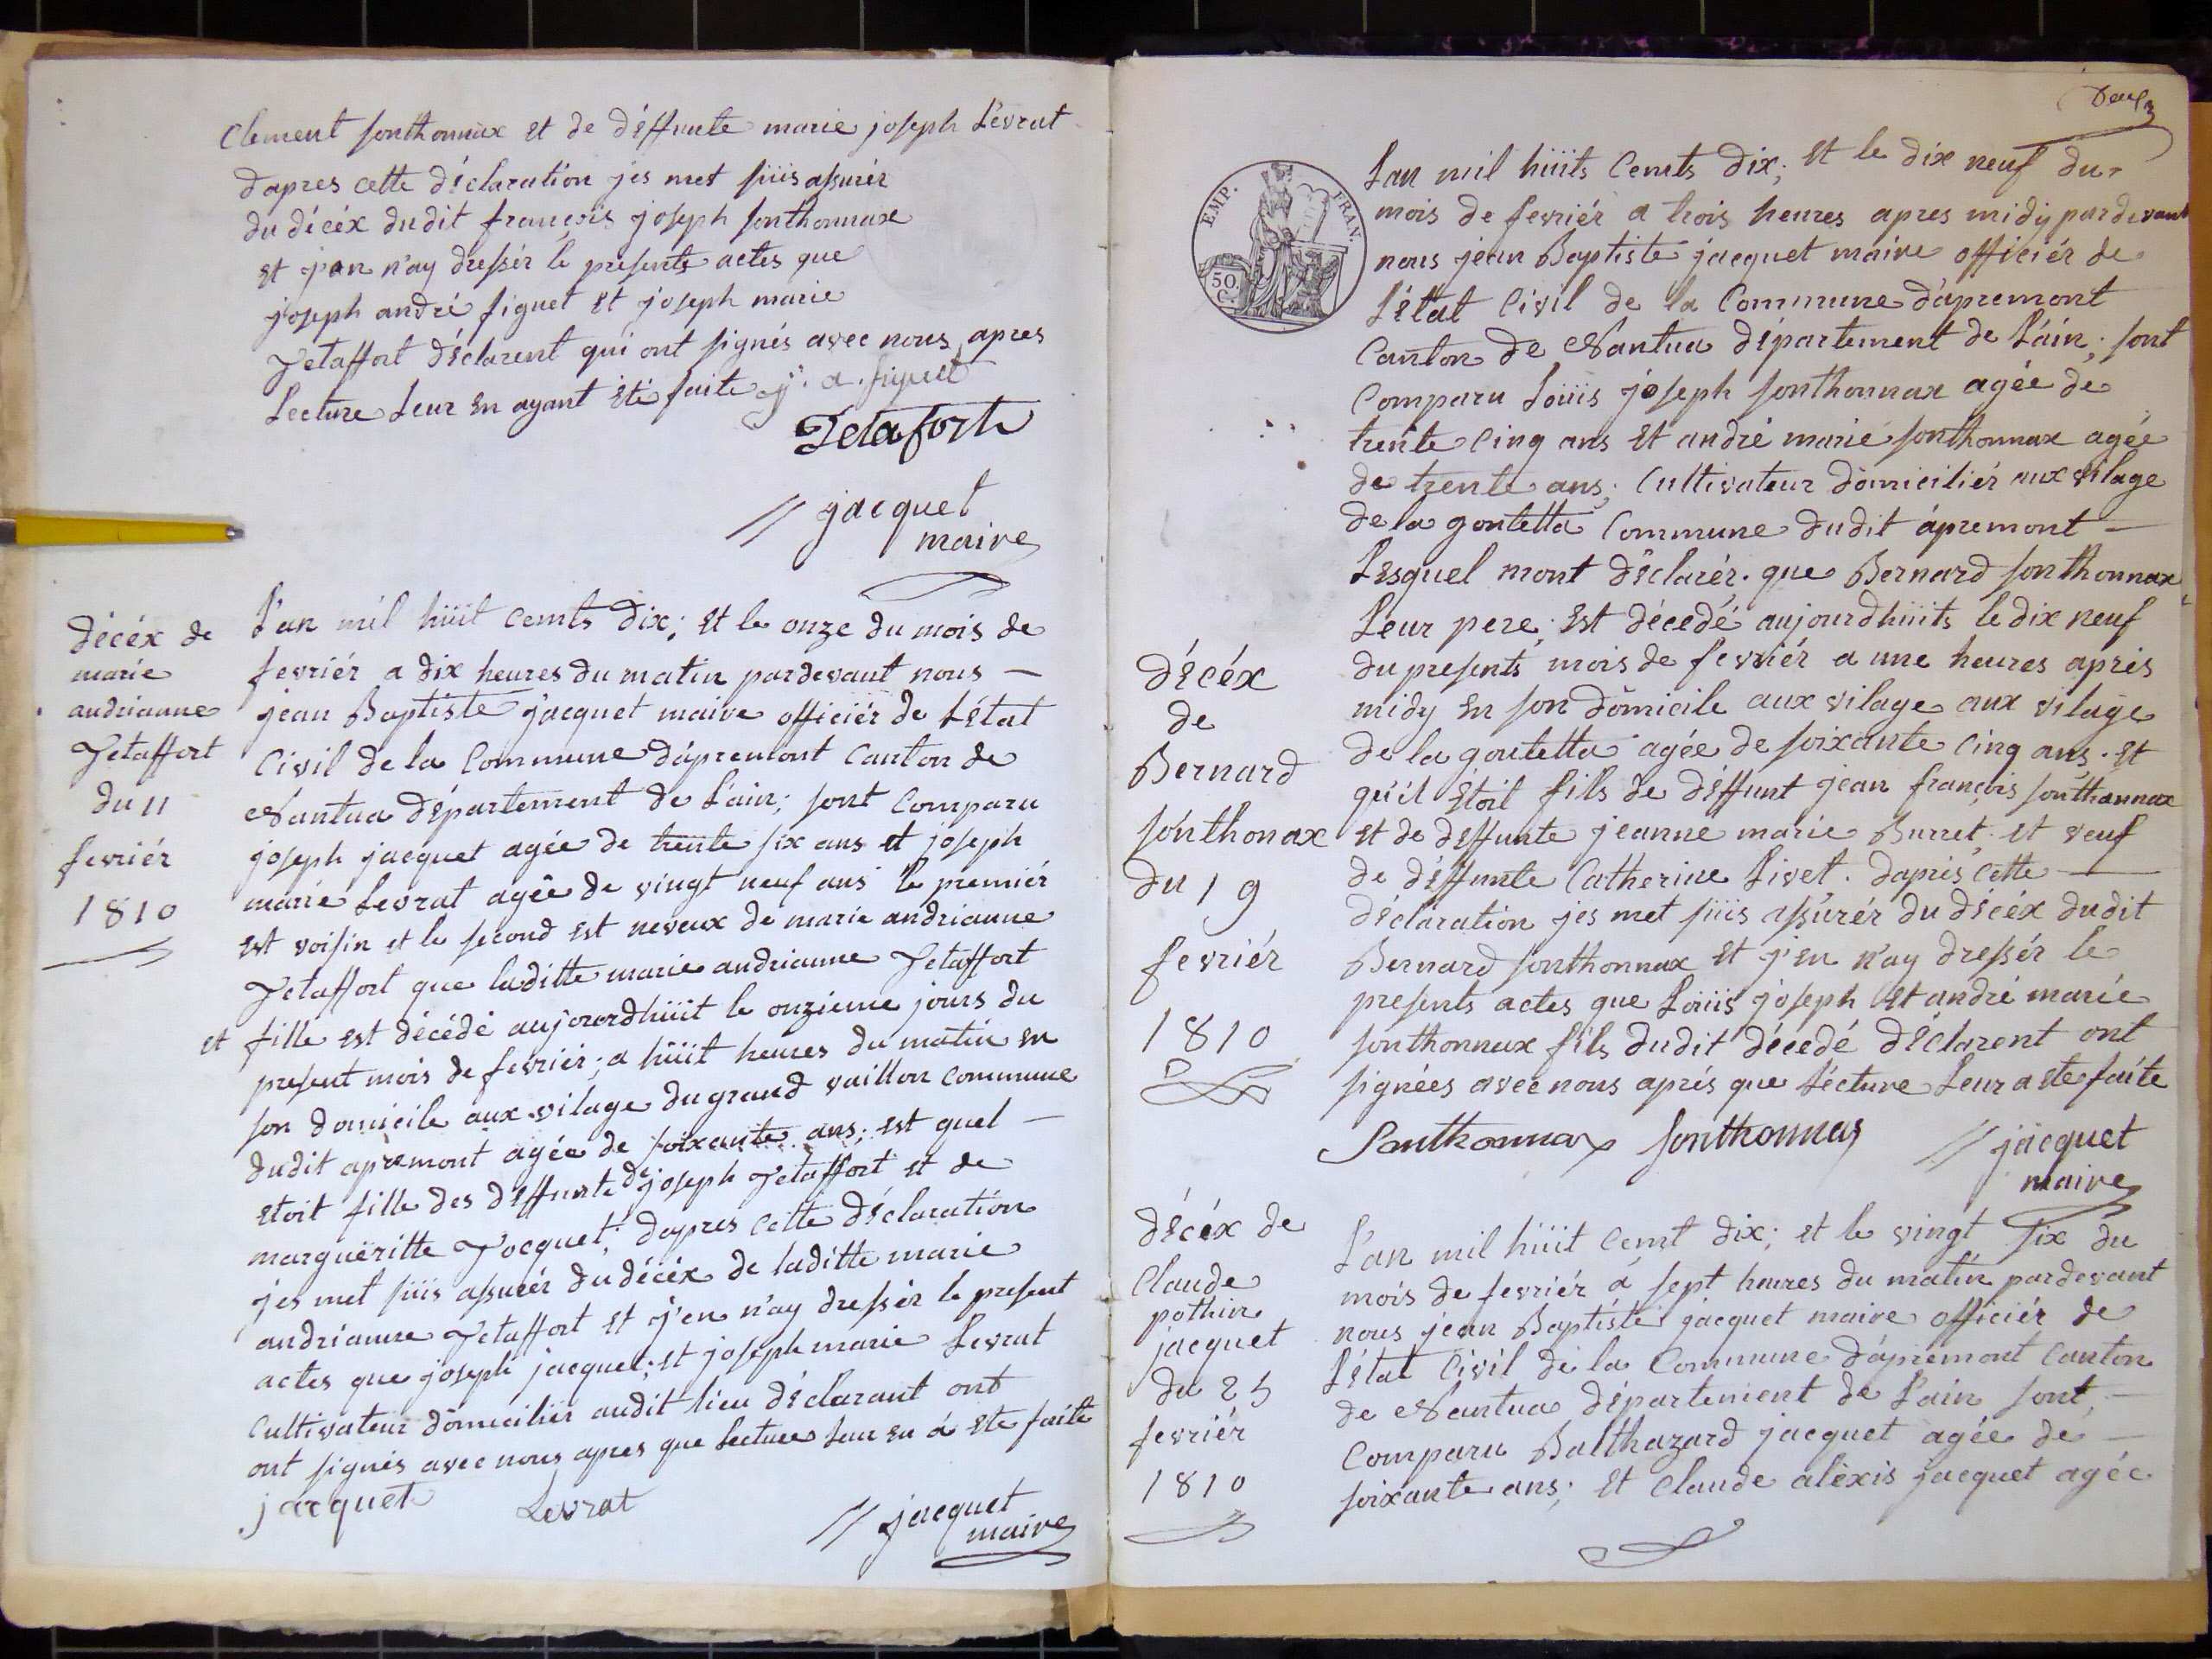 Clement sonthonnax et de déffunte marie joseph Levrat
dapres cette déclaration jes met süis assurér
du décéx dudit françois joseph sonthonnax
et jen n'ay dressér le presents actes que
joseph andré figuet et joseph marie
Jetaffort déclarent qui ont signés avec nous apres
Lecture Leur en ayant été faite j. a. figuet
Jetafort
jacquet
maire
décéx de
marie
andrianne
Jetaffort
du 11
fevriér
1810
L'an mil hüit cemts dix; et le onze du mois de
fevriér a dix heures du matin pardevant nous —
jean Baptiste jacquet maire officiér de Létat
Civil de la Commune dápremont Canton de
Nantua département de Lain; sont Comparu
joseph jacquet agée de trente six ans et joseph
marie Levrat agée de vingt neuf ans le premiér
est voisin et le second est neveux de marie andrianne
Jetaffort que laditte marie andrianne Jetaffort
et fille est décédé aujourdhüit le onzieme jours du
present mois de fevriér; a hüit heures du matin en
son domicile aux vilage du grand vaillon commune
dudit apremont agée de soixante ans; est quel —
etoit fille des déffunte de joseph Jetaffort et de
margueritte Jocquet; dapres cette déclaration
jes met süis assurér du décéx de laditte marie
andrianne Jetaffort et j'en n'ay dressér le present
actes que joseph jacquet; et joseph marie Levrat
Cultivateur domiciliér audit lieu déclarant ont
ont signés avec nous apres que Lecture Leur en a eté faite
jacquet Levrat
jacquet
maire
Deux
EMP. FRAV.
50 C.
Lan mil hüits Cemts dix; et le dix neuf du
mois de fevriér a trois heures apres midy pardevant
nous jean Baptiste jacquet maire officiér de
Létat Civil de la Commune dápremont
Canton de Nantua département de Láin; sont
Comparu Loüis joseph sonthonnax agée de
trente Cinq ans et andré marie sonthonnax agée
de trente ans; Cultivateur domiciliér aux vilage
de la goutetta Commune dudit ápremont —
Lesquel mont déclarér; que Bernard sonthonnax
Leur pere; est décedé aujourdhüits le dix neuf
du presents mois de fevriér a une heures apres
midy en son domicile aux vilage aux vilage
de la goutetta agée de soixante Cinq ans. et
qu'il étoit fils de déffunt jean françois sonthonnax
et de deffunte jeanne marie Burret; et veuf
de déffunte Catherine Livet. dapres Cette —
déclaration jes met süis assurér du décéx dudit
Bernard sonthonnax et j'en n'ay dressér le
presents actes que Loüis joseph et andré marie
sonthonnax fils dudit décedé déclarent ont
signées avec nous aprés que Lécture Leur a eté faite
décéx
de
Bernard
sonthonax
du 19
fevriér
1810
Santhonnax sonthonnax jacquet
maire
décéx de
Claude
pothin
jacquet
du 25
fevriér
1810
L'an mil hüit Cemt dix; et le vingt six du
mois de fevriér á sept heures du matin pardevant
nous jean Baptiste jacquet maire officiér de
Létat Civil de la Commune dápremont Canton
de Nantua département de Lain sont —
Comparu Balthazard jacquet agée de —
soixante ans; et Claude aléxis jacquet agée